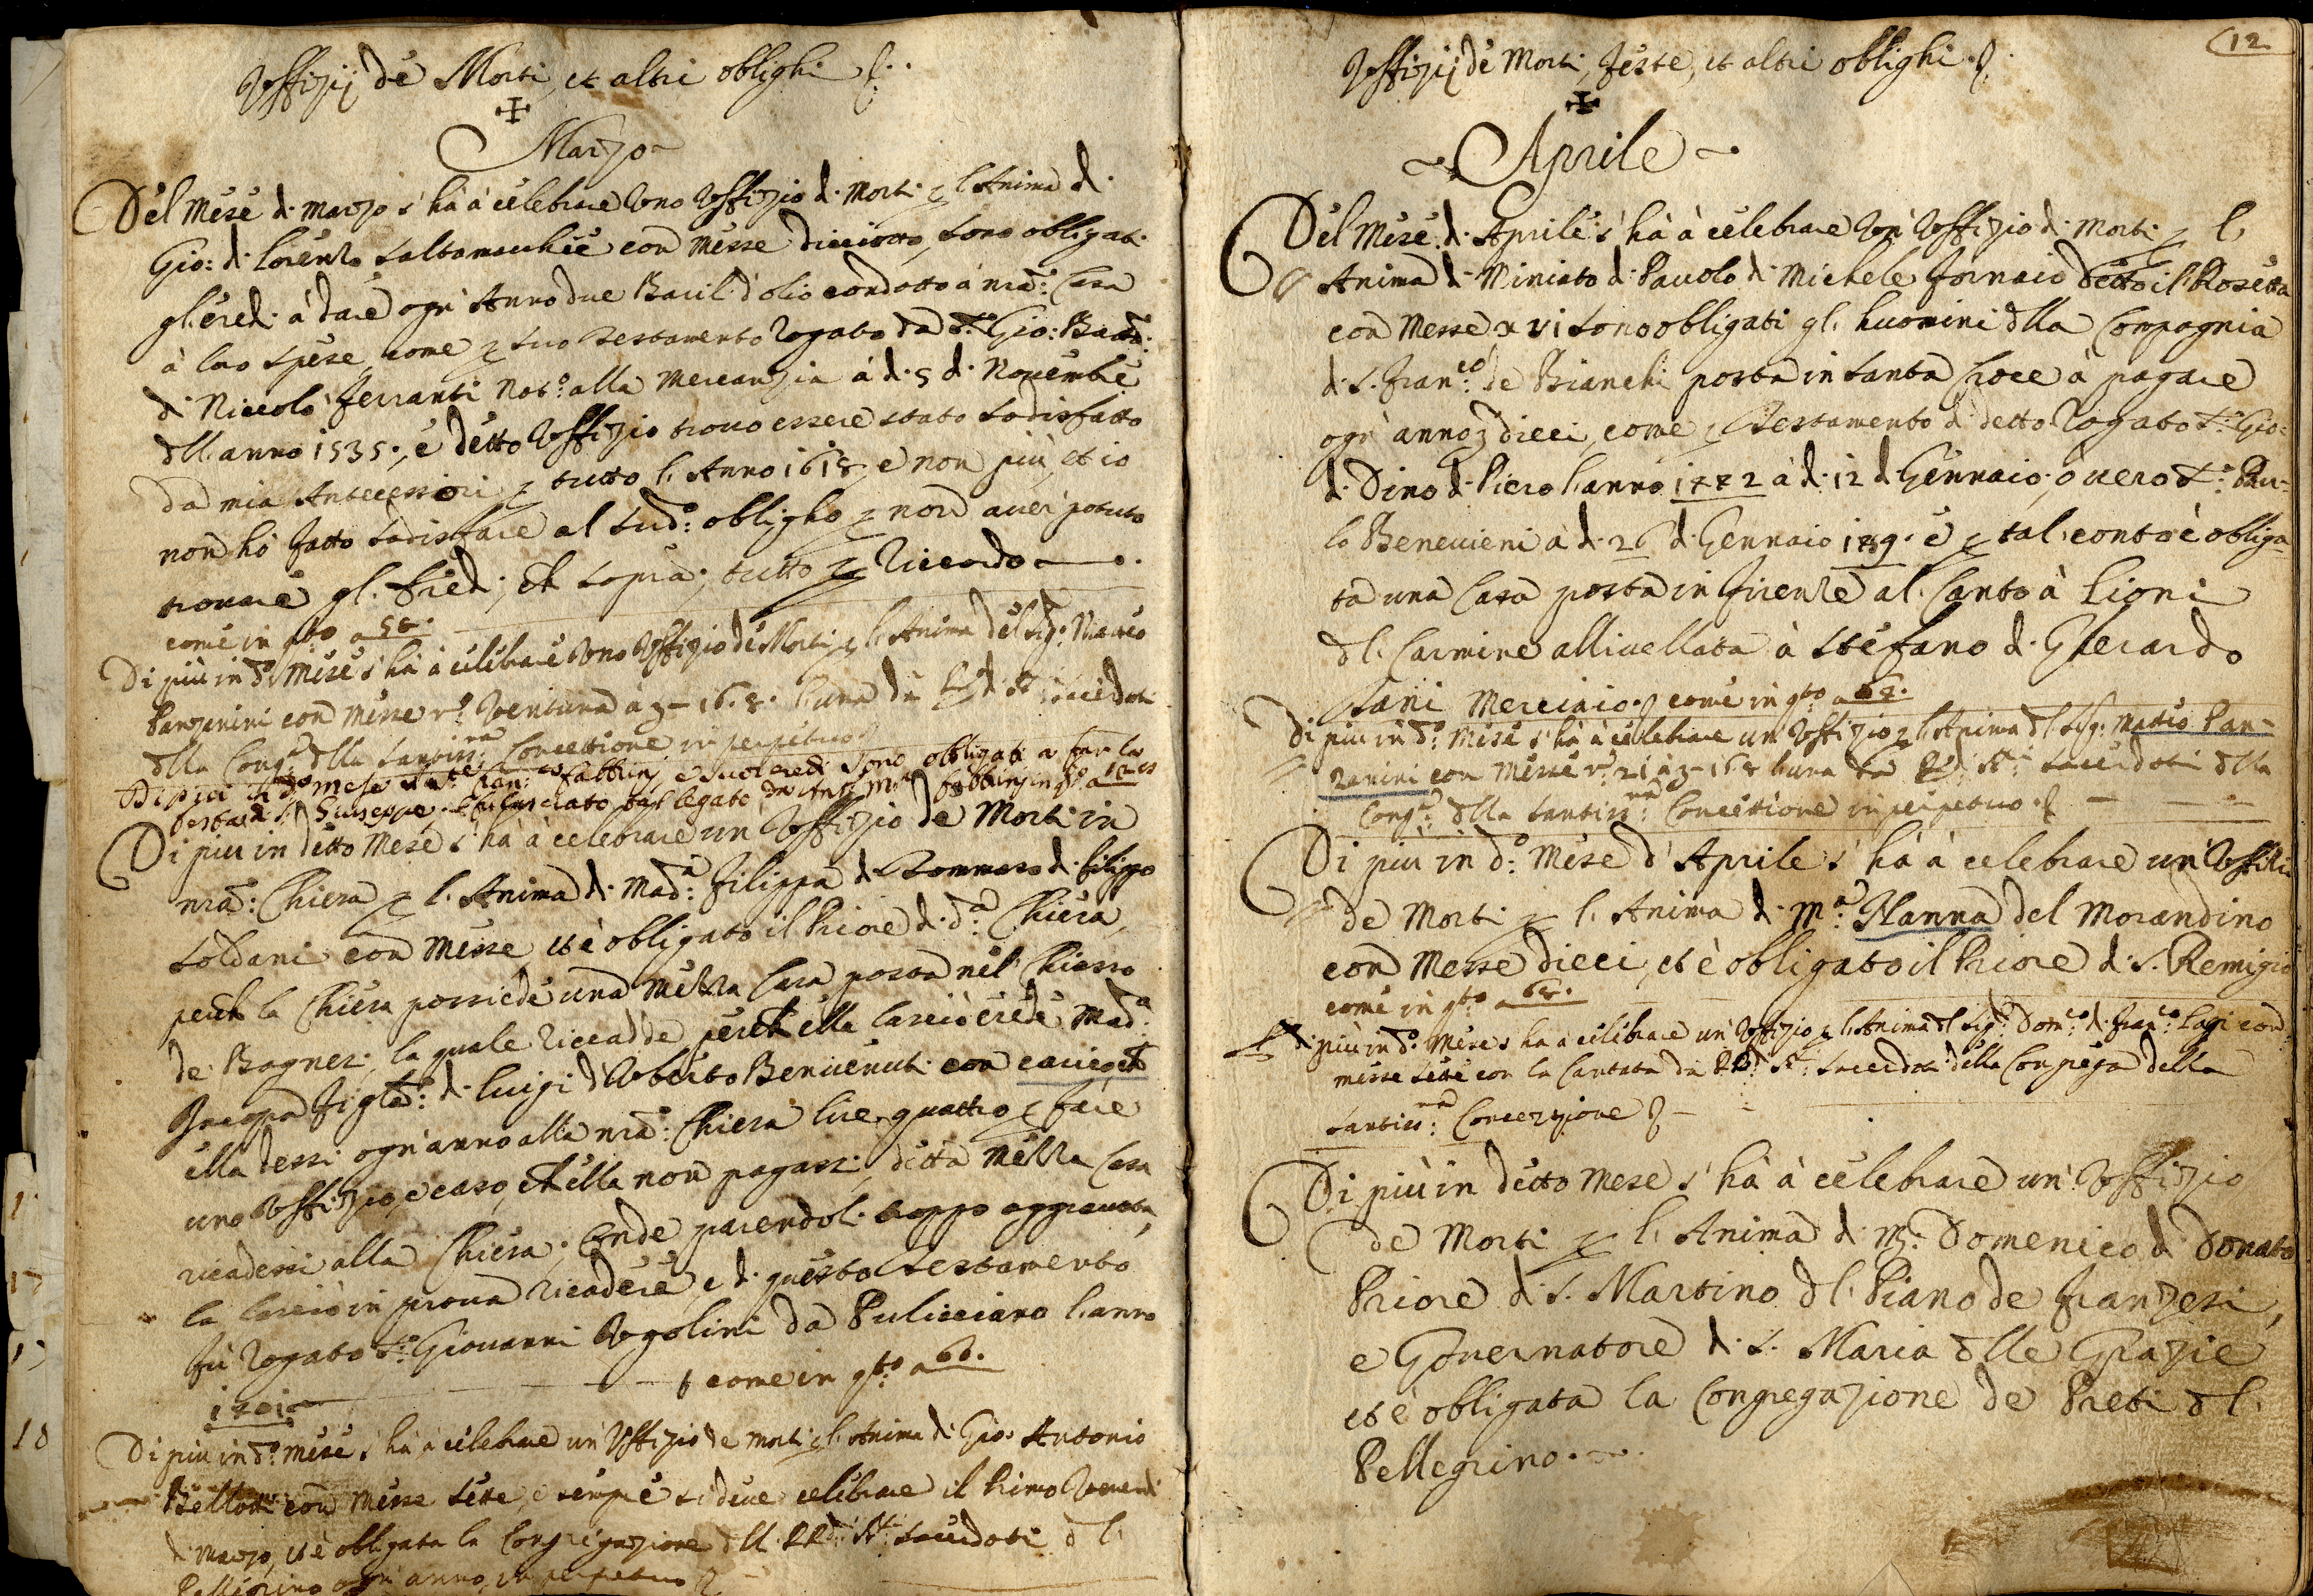 Voffizij de Morti, et altri oblighi
Marzo
Del Mese di Marzo s'hà à celebrare Uno Voffizio di Morti p l'Anima di
Gio: di Lorenzo Saltamacchie con Messe diciotto, sono obligati
gl'eredi à dare ogn'Anno due Barili d'olio condotto à nra: Casa
à loro spese, come p suo Testamento Rogato da Sr: Gio: Batta:
di Niccolò Ferranti Noto: alla Mercanzia à dì 5 di Novembre
dll'anno 1535., e detto Voffizio trovo essere stato sodisfatto
da miei Antecessori p tutto l'Anno 1618 e non più, et io
non hò fatto sodisfare al sudo: obligho p non aver potuto
trovare gl'Eredi, ch sopra; tutto p Riccordo
come in qto a 58.
Di più in do: Mese s'hà à celebrare Uno Voffizio de Morti p l'Anima del Sigr: Matteo
Panzanini con Messe ro: Ventuna à 16.8. l'una da RRdi Sri: Sacerdoti
dlla Conga: dlla Santissma: Concettione in perpetuo
Di più in do mese Franco Fabbrinj e suoi eredi sono obbligati a far la
festa di S. Giuseppe
Di più in detto Mese s'hà à celebrare un Voffizio de Morti in
nra: Chiesa p l'Anima di Mada: Filippa di Tommaso di Filippo
Soldani con Messe et è obligato il Priore di da: Chiesa,
perch la Chiesa possiede una mezza Casa posta nel Chiasso
de Bagnesi, la quale riccadde, perch ella lasciò erede Mada:
Jacopa figla: di Luigi d'Uberto Benvenuti con carico, ch
ella dessi ogn'anno alla nra: Chiesa lire quattro p fare
uno Voffizio, e caso, ch ella non pagassi, detta mezza Casa
ricadessi alla Chiesa; Onde parendoli troppo aggravata,
la lasciò in prova ricadere, e di questo Testamento
fù Rogato Sr: Giovanni Ugolini da Pulicciano l'anno
1401 come in qto a 60.
Di più in do: Mese s'hà à celebrare un Voffizio de morti p l'Anima di Gio: Antonio
Bellotti con Messe sette, e sempre si deve celebrare il Primo Venerdi
di Marzo, et è obligata la Congregazione dlli RRdi Sri: Sacerdoti dl
Pellegrino ogn'anno, in perpetuo
12
Voffizij de Morti, Feste, et altri oblighi
Aprile
Del Mese di Aprile s'hà à celebrare Un Voffizio di Morti p l'
Anima di Miniato di Pavolo di Michele Fornaio detto il Rosetta
con Messe xvi sono obligati gl'huomini dlla Compagnia
di S. Franco: de Bianchi posta in Santa Croce à pagare
ogn'anno dieci, come p Testamento di detto Rogato Sr: Gio:
di Dino di Piero l'anno 1472 à dì 12 di Gennaio, overo Sr: Pau-
lo Benevieni à dì 26 di Gennaio e p tal conto è obliga
ta una Casa posta in Firenze al Canto à Lioni
dl Carmine allivellata à Stefano di Gherardo
Sani Merciaio come in qto a
Di più in do: Mese s'hà à celebrare un Voffizio p l'Anima dl Sigr: Matteo Pan-
zanini con Messe ro: 21 à 16 8 l'una da RRdi Sri: Sacerdoti dlla
Conga: dlla Santissma: Concettione in perpetuo
Di più in do: Mese d'Aprile s'hà à celebrare un Voffizio
de Morti p l'Anima di Ma: Nanna del Morandino
con Messe dieci, et è obligato il Priore di S. Remigio
come in qto a 68.
Di più in do: Mese s'ha a celebrare un Voffizio p l'Anima dl Sigr: Domco: di Franco: Lapi con
messe sette con la Cantata da RRdi Sri: Sacerdoti della Congrega della
Santissma: Concezzione
Di più in detto Mese s'hà à celebrare un Voffizio
de Morti p l'Anima di Mr: Domenico di Donato
Priore di S. Martino dl Piano de Franzesi,
e Governatore di S. Maria dlle Grazie
et è obligata la Congregazione de Preti dl
Pellegrino.